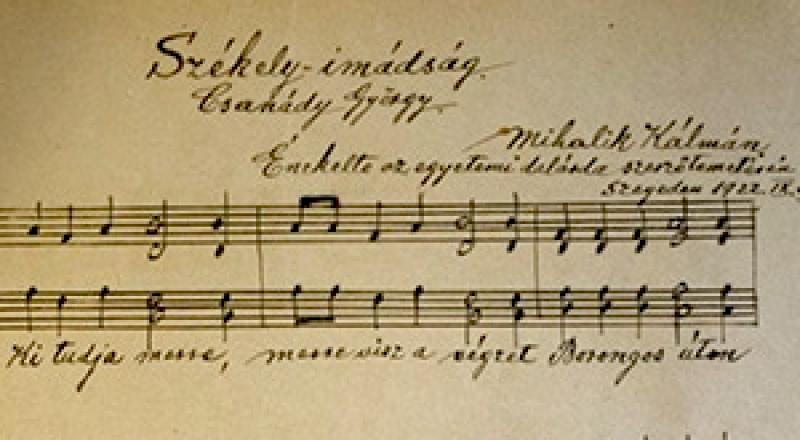 Székely-imádság
Csanády György
Mihalik Kálmán
Énekelte az egyetemi dalárda szerzőtemetésén
Szegeden 1922. IX.
Ki tudja merre, merre visz a végzet Borongos úton